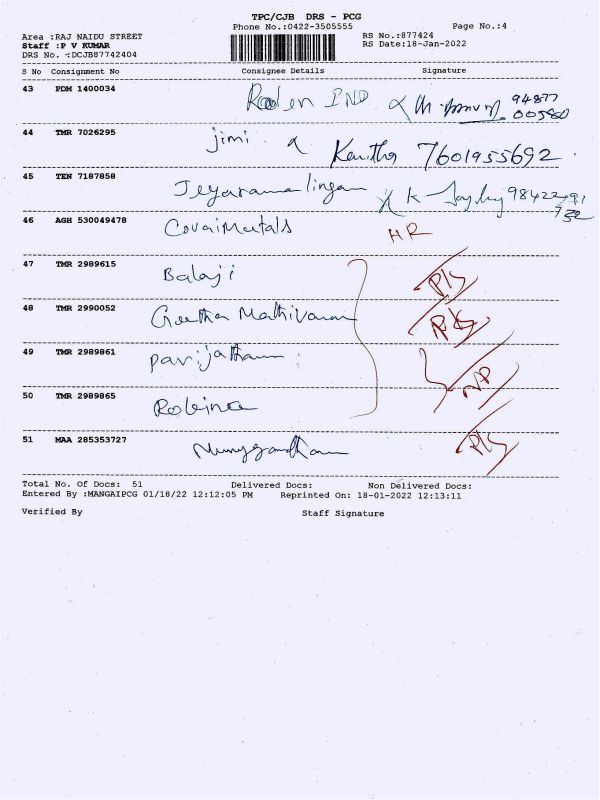 TPC/CJB DRS - PCG
Phone No.:0422-3505555 Page No.:4
Area :RAJ NAIDU STREET RS No.:877424
Staff :P V KUMAR RS Date:18-Jan-2022
DRS No. :DCJB87742404
S No Consignment No Consignee Details Signature
43 PDM 1400034 IND 94877
005980
44 TMR 7026295 jimi Kavitha 7601955692
45 TEN 7187858 Jeyaramalingam K 98422
46 AGH 530049478 CovaiMetals HR
47 TMR 2989615 Balaji
48 TMR 2990052 Geetha Mathivanan
49 TMR 2989861 parijatham
50 TMR 2989865 Robina NP
51 MAA 285353727
Total No. Of Docs: 51 Delivered Docs: Non Delivered Docs:
Entered By :MANGAIPCG 01/18/22 12:12:05 PM Reprinted On: 18-01-2022 12:13:11
Verified By Staff Signature